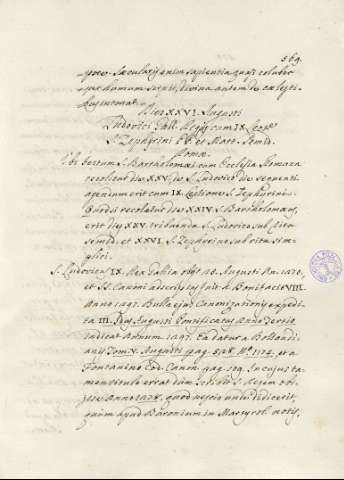 569.
gneo. Sæcularis enim sapientia quasi coluber
per humum serpit, divina autem de cælesti-
bus intonat.
Dies XXVI. Augusti
Ludovici Gall. Regis cum IX. Lect.
S. Zephyrini PP. et Mart. Semid.
Romæ
Ubi Festum S. Bartholomæi cum Ecclesia Romana
recolitur die XXV. de S. Ludovico die sequenti
agendum erit cum IX. Lectione S. Zephyrini.
recolitur die XXIV. S. Bartholomæus,
erit dies XXV. tribuenda S. Ludovico sub ritu
semid. et XXVI. S. Zephyrino sub ritu sim-
plici.
S. Ludovicus IX. Rex Galliæ obijt 25. Augusti An. 1270,
et SS. Canoni adscriptus fuit à Bonifacio VIII.
Anno 1297. Bulla ejus Canonizationis expedi-
ta III. Idus Augusti Pontificatus Anno Tertio
indicat Annum 1297. Ea datur a Bollandi-
anis Tom. V. Augusti pag. 528. Nº. 1174. et a
Fontanino Cod. Canon. pag. 109. In cujus ta-
men titulo errat dum scribit S. Regem obi-
isse Anno 1278. quod nescio unde didicerit,
quum apud Baronium in Martyrol. notis,